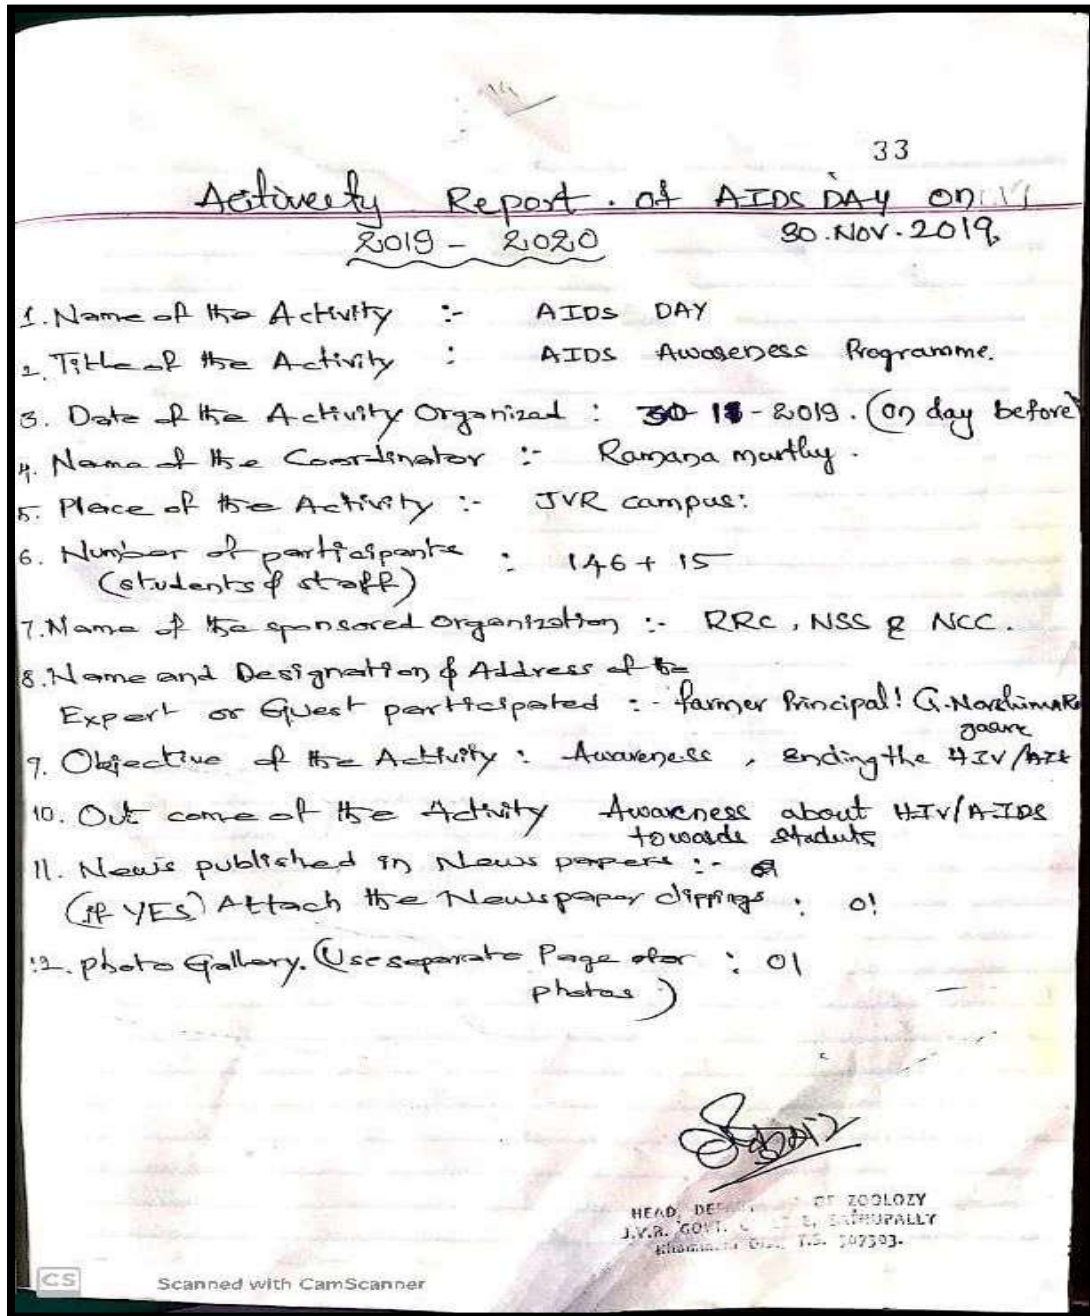 33
Activeety Report of AIDS DAY on
2019 - 2020 30.NOV.2019
1. Name of the Activity :- AIDS DAY
2. Title of the Activity : AIDS Awareness Programme.
3. Date of the Activity Organized : 30-11-2019. (on day before)
4. Name of the Coordinator :- Ramana murthy.
5. Place of the Activity :- JVR campus:
6. Number of participants : 146 + 15
(students & staff)
7. Name of the sponsored organization :- RRC, NSS & NCC.
8. Name and Designation & Address of the
Expert or Guest participated :- farmer Principal! G.
9. Objective of the Activity : Awareness, ending the HIV/
10. Out come of the Activity Awareness about HIV/AIDS
towards
11. News published in News papers :-
(if YES) Attach the Newspaper clippings : 01
12. photo Gallery. (Use separate Page for : 01
photos)
HEAD, OF ZOOLOZY
J.V.R. GOVT.
T.S. 507303.
CS Scanned with CamScanner